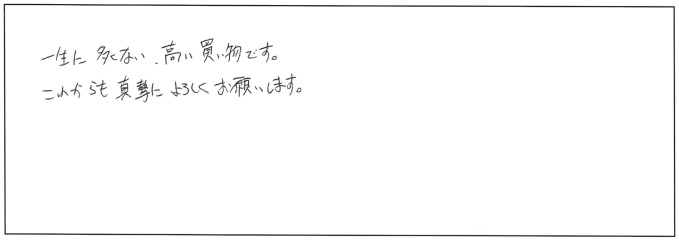 一生に多くない、高い買い物です。
これからも真摯によろしくお願いします。